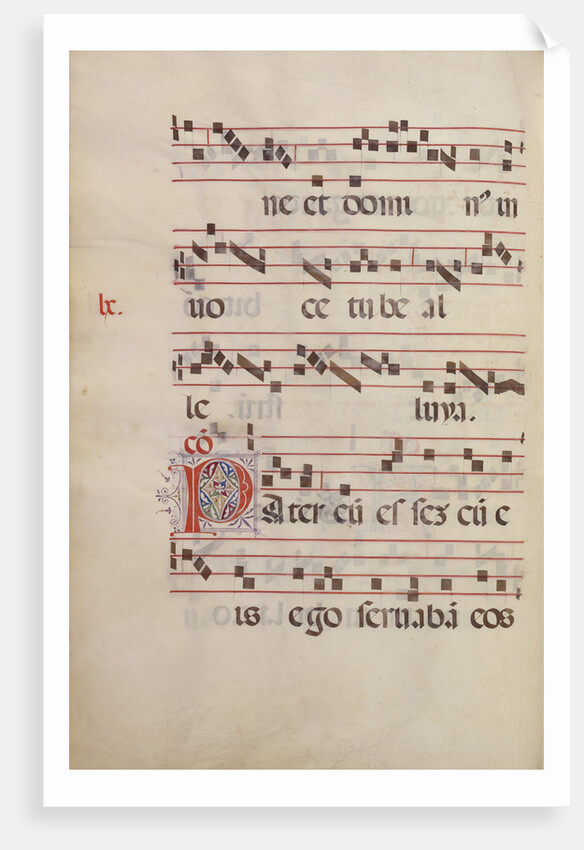 ne et domi nꝰ in
lx.
uo ce tu be al
le luya.
cō
Pater cū essez cū e
is ego seruabā eos